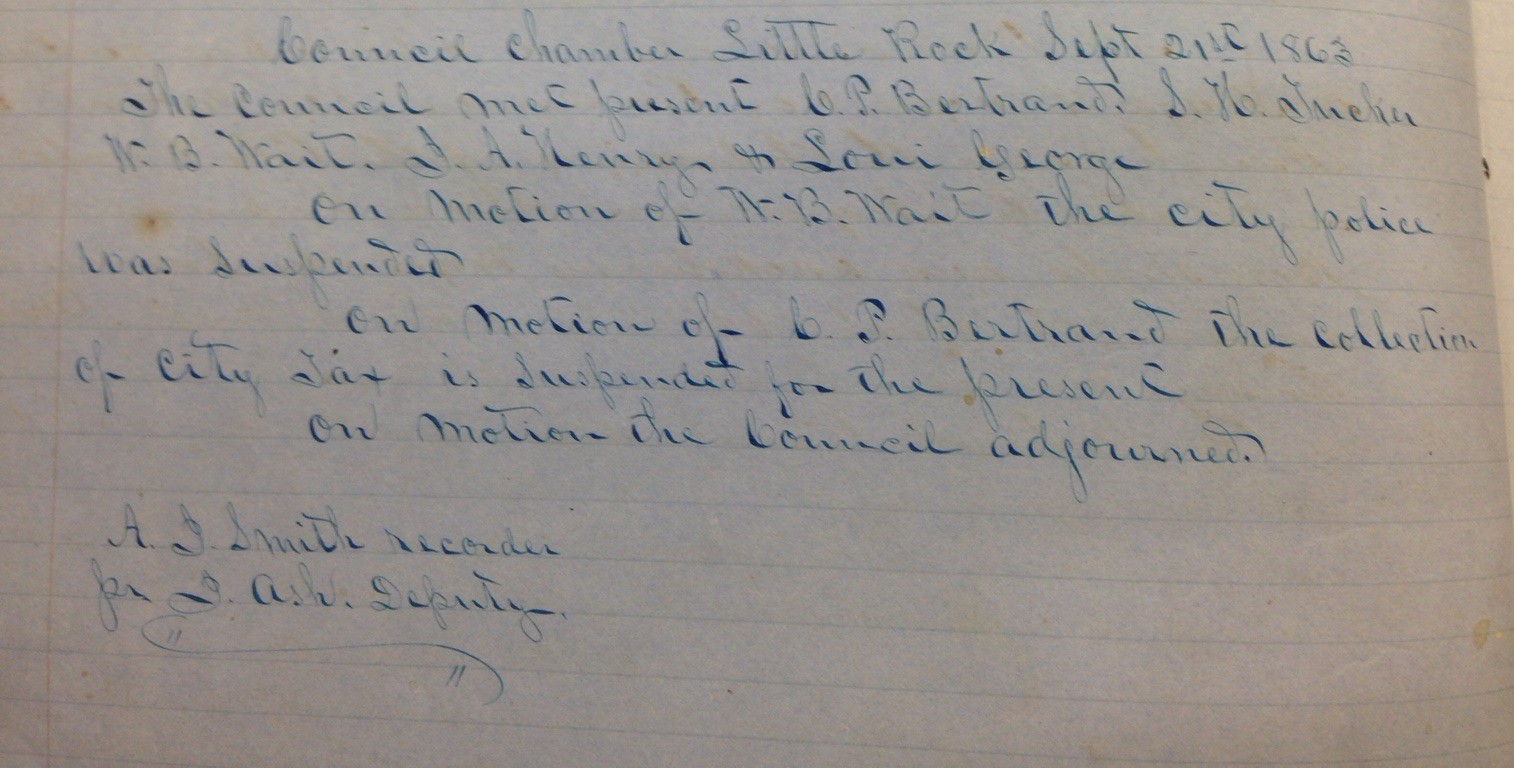 Council Chamber Little Rock Sept 21st 1863
The Council met present C. P. Bertrand. S. H. Tucker
W. B. Wait. J. A. Henry. & Loui George
on motion of W. B. Wait the city police
was suspended
on motion of C. P. Bertrand the collection
of City Tax is suspended for the present
on motion the Council adjourned.
A. J. Smith recorder
pr J. Ash. Deputy.